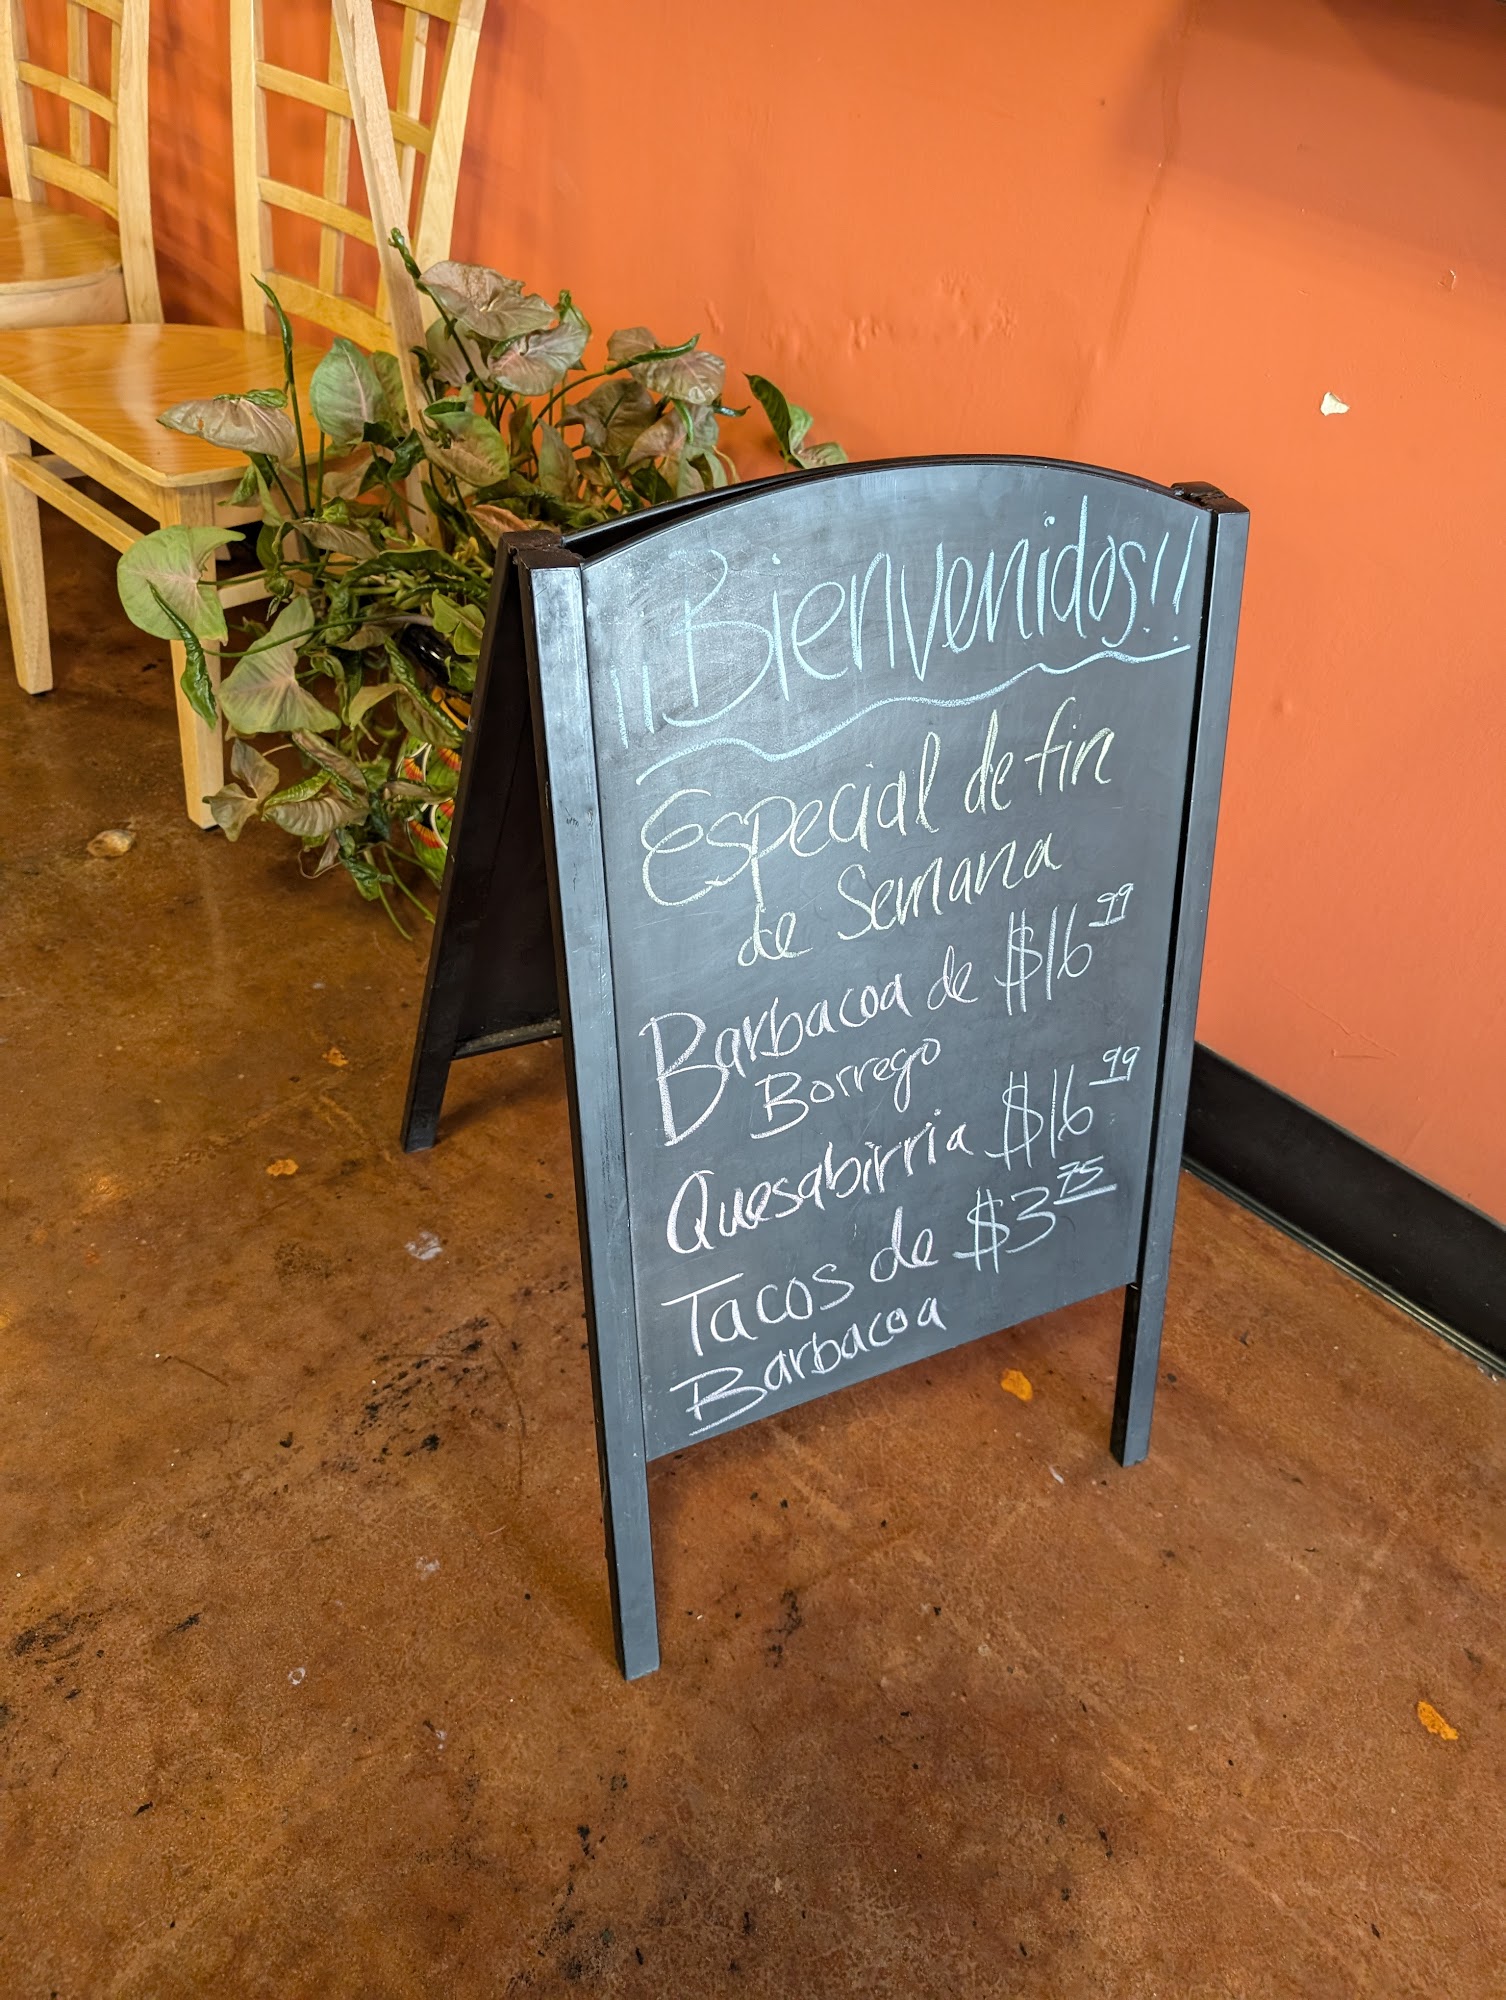 ¡¡Bienvenidos!!
Especial de fin
de Semana
Barbacoa de $16.99
Borrego
Quesabirria $16.99
Tacos de $3.75
Barbacoa